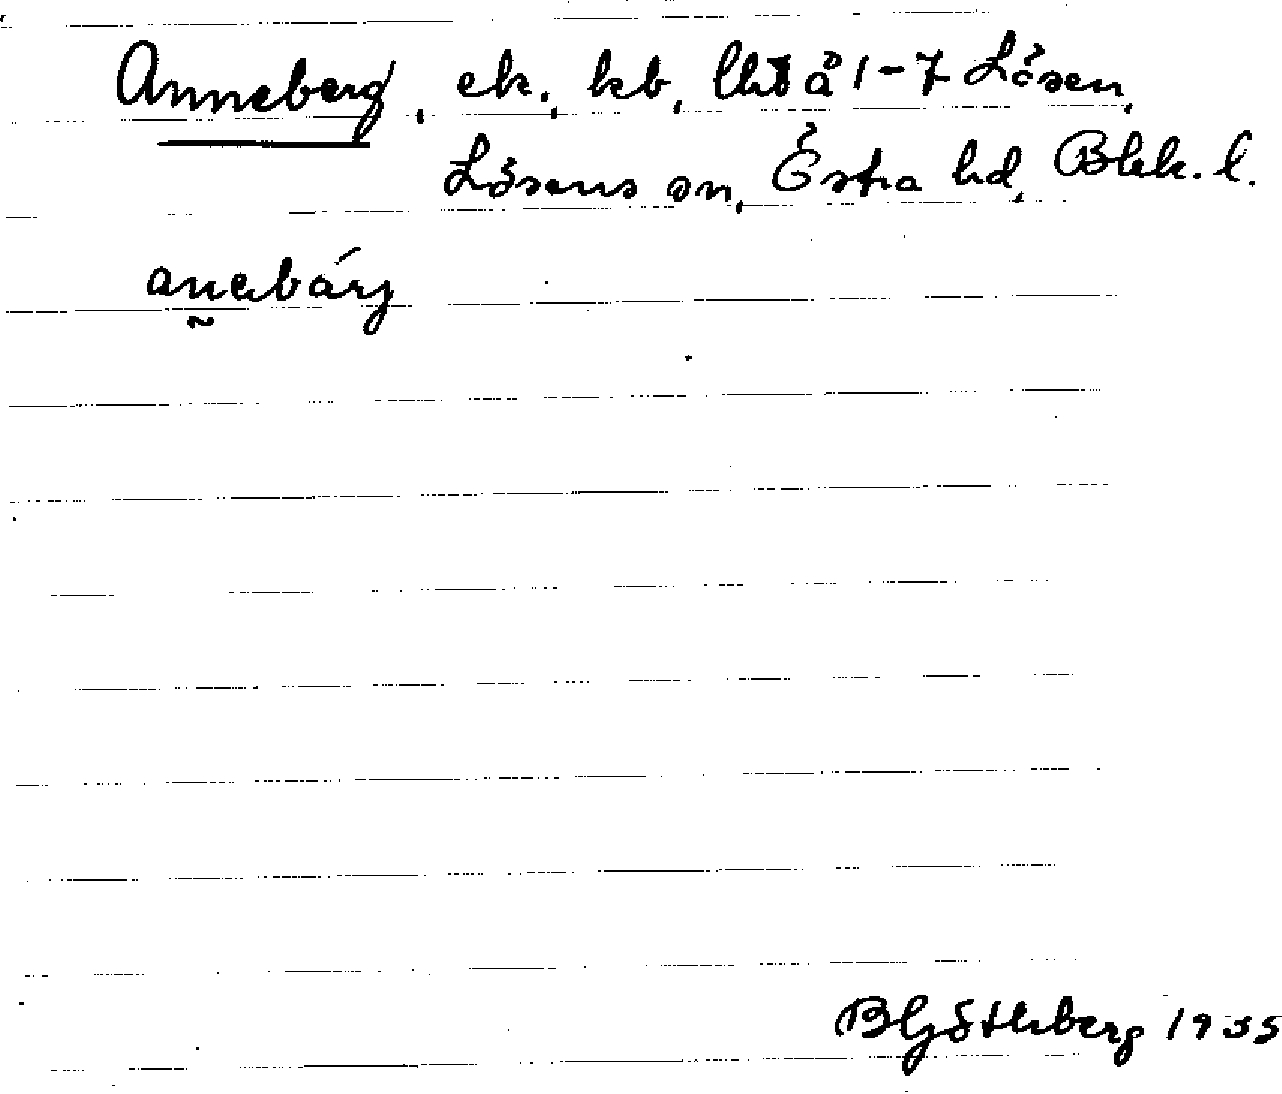 Anneberg, ek., kb, lht å 1-7 Lösen,
Lösens sn, Östra hd, Blek. l.
anebárj
BGötheberg 1935